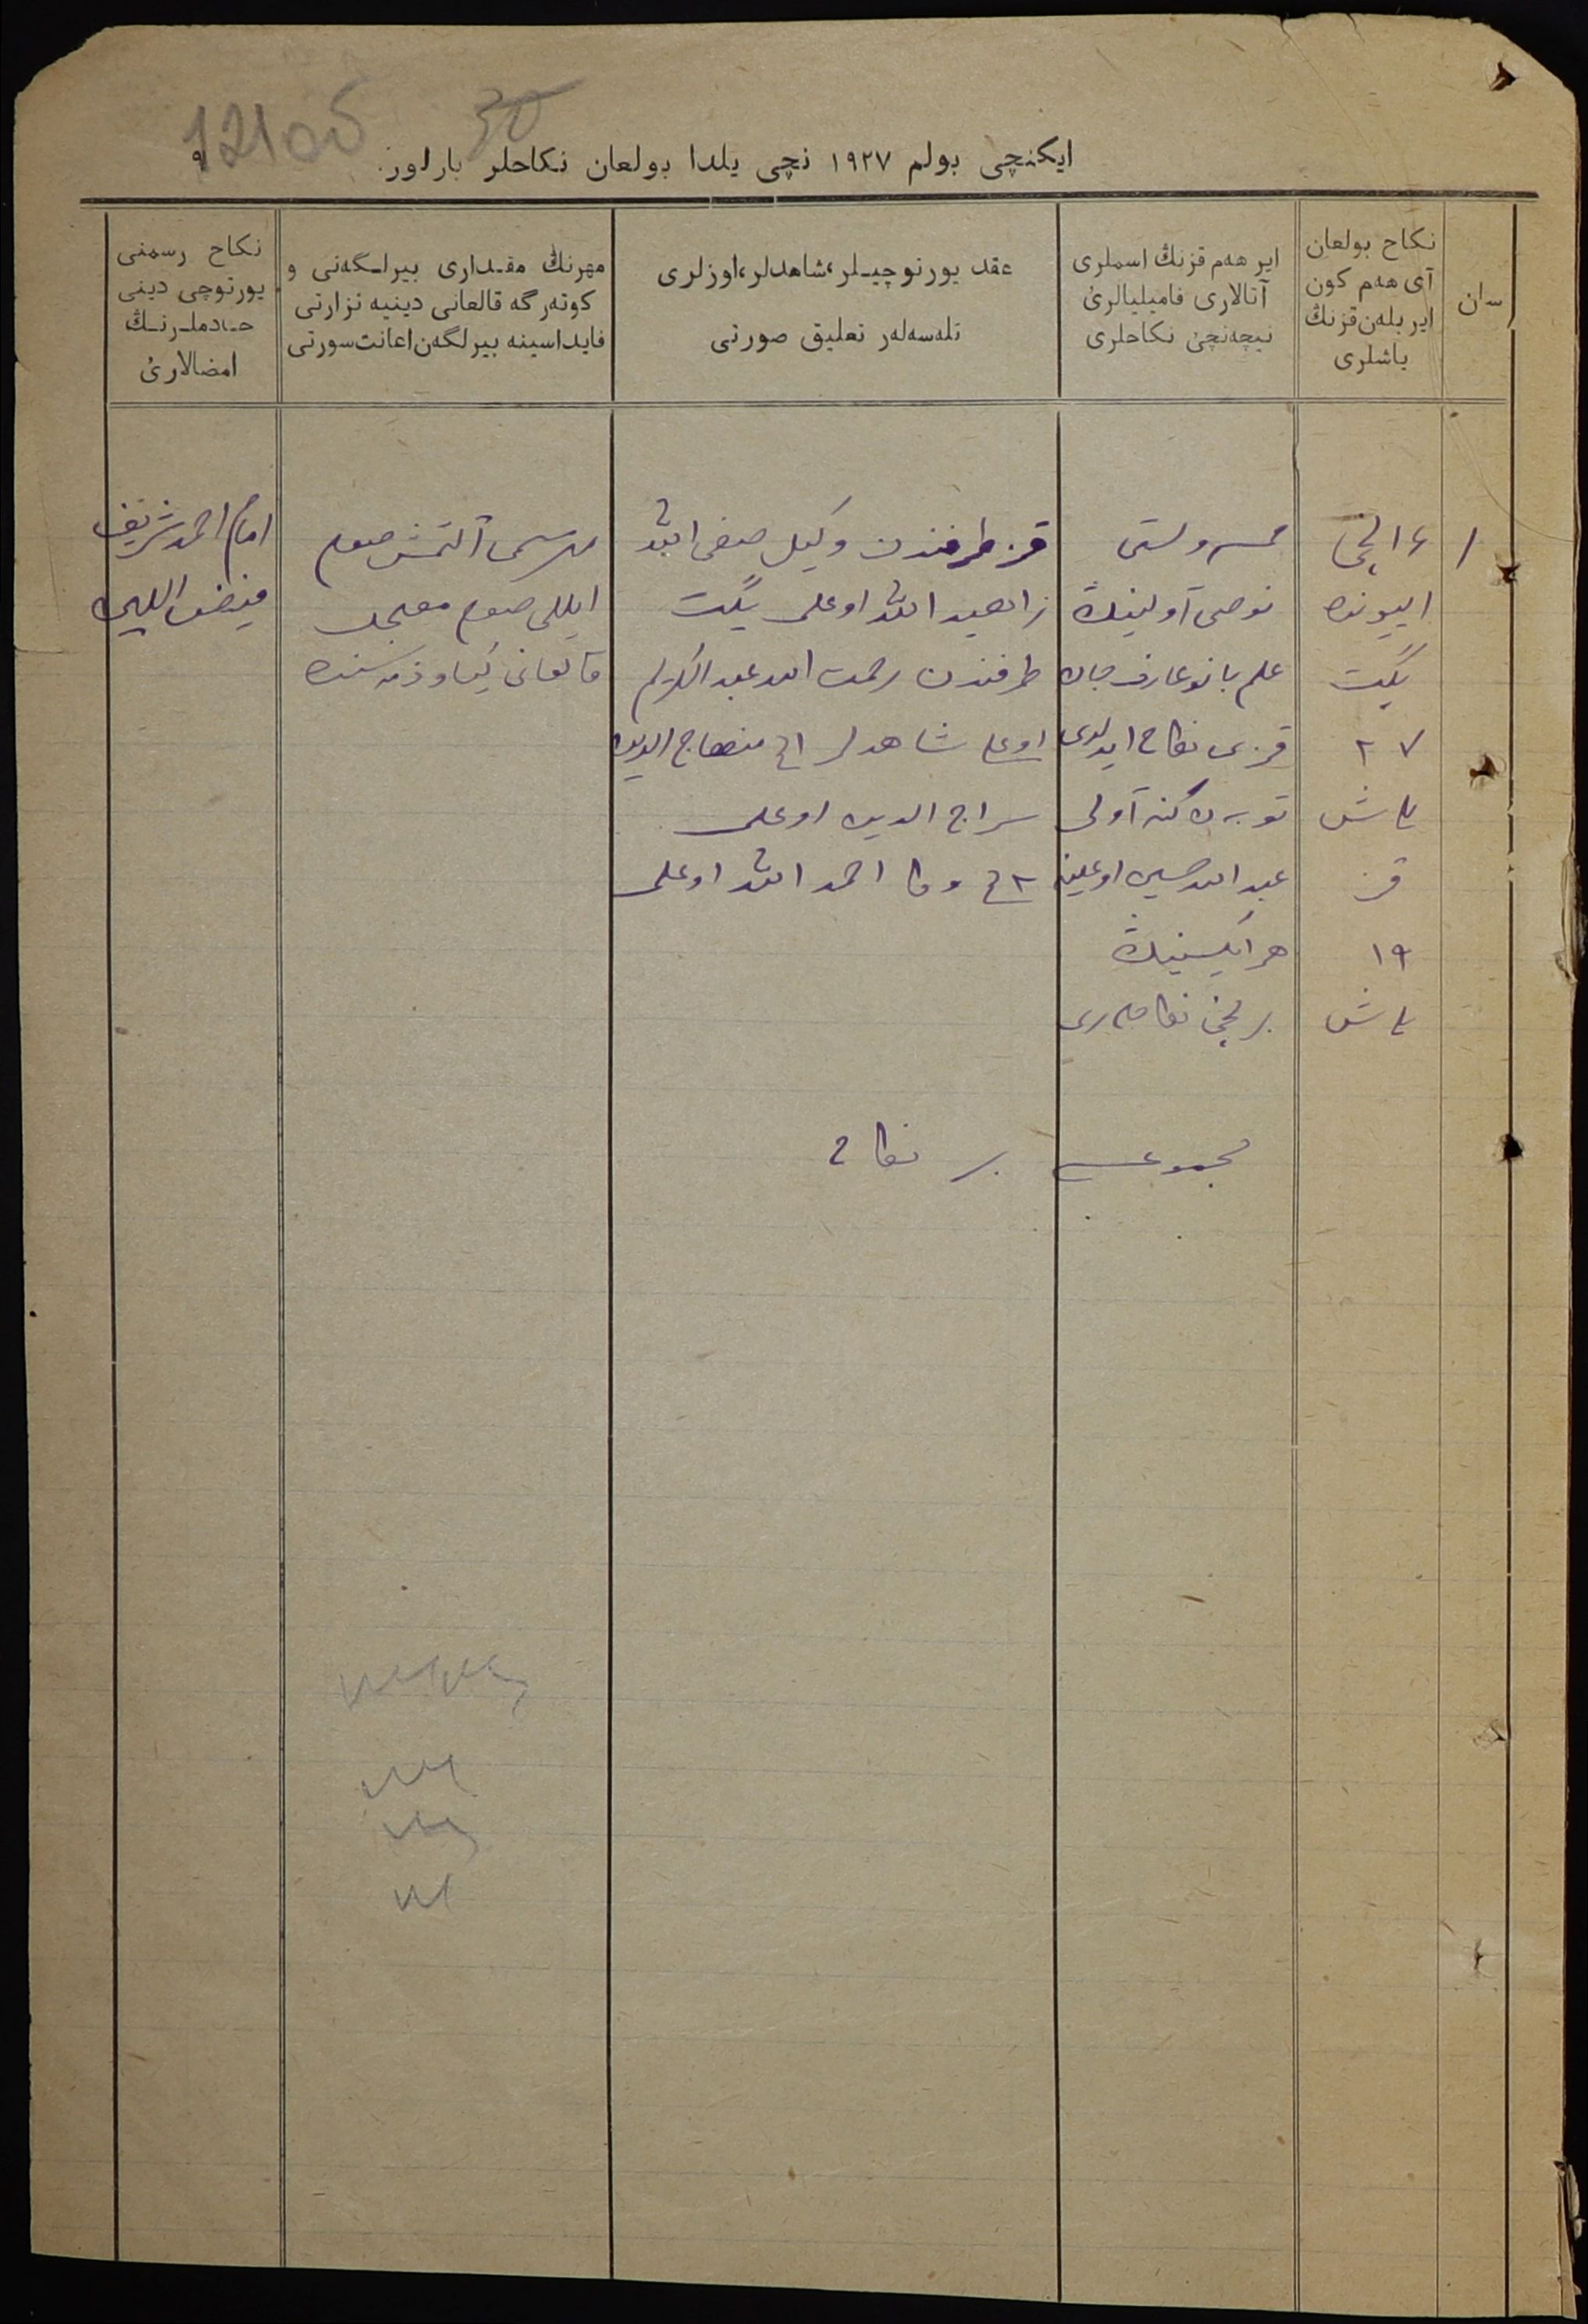 12105 30
ایکنچی بولم ١٩٢٧ نچی یلدا بولعان نکاحلر بارلور. ٩
سان
نکاح بولعان
آی هەم کون
ایر بلەن قزنڭ
باشلری
ایر هەم قزنڭ اسملری
آنالاری فامیلیالرئ
نیچەنچئ نکاحلری
عقد یورتوچیلر، شاهدلر، اوزلری
تلەسەلەر تعلیق صورتی
مهرنڭ مقداری بیرلگەنی و
کوتەرگە قالعانی دینیە نزارتی
فایداسینە بیرلگەن اعانت سورتی
نکاح رسمنی
یورتوچی دینی
خادملرنڭ
امضالارئ
١
١٤ نچی
ایيونده
یگیت
٢٧
یاش
قز
١٩
یاش
آولینڭ
علم بانو عارف جان
قزی نکاح ایدلدی
آولی
عبد الله حسین اوغلینه
هر ایکسینڭ
برنچی نکاحلری
قز طرفندن وکیل صفی الله
زاهید الله اوغلی یگیت
طرفندن رحمت الله عبد الکریم
اوغلی شاهدلر ١نچی منهاج الدین
سراج الدین اوغلی
٢نچی وفا احمد الله اوغلی
مهر سمی آلتمش صوم
ایللی صوم معجل
قالعانی کیاو ذمه سنده
امام احمد شریف
مجموعسی بر نکاح